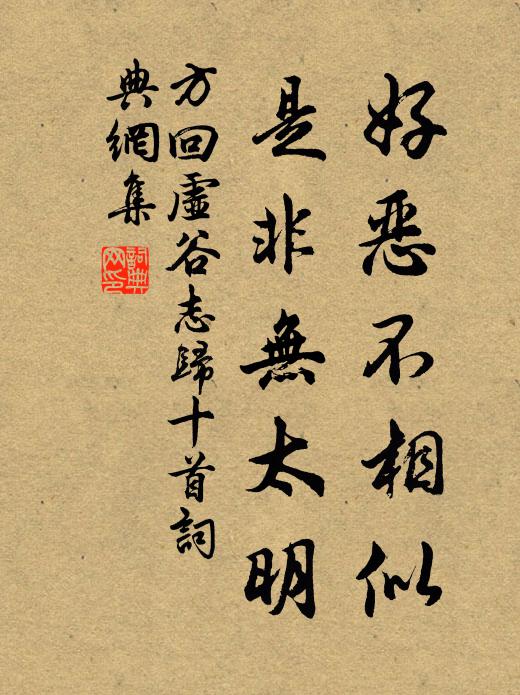 好惡不相似
是非無太明
方回虛谷志歸十首詞
典網集
詞典
网印